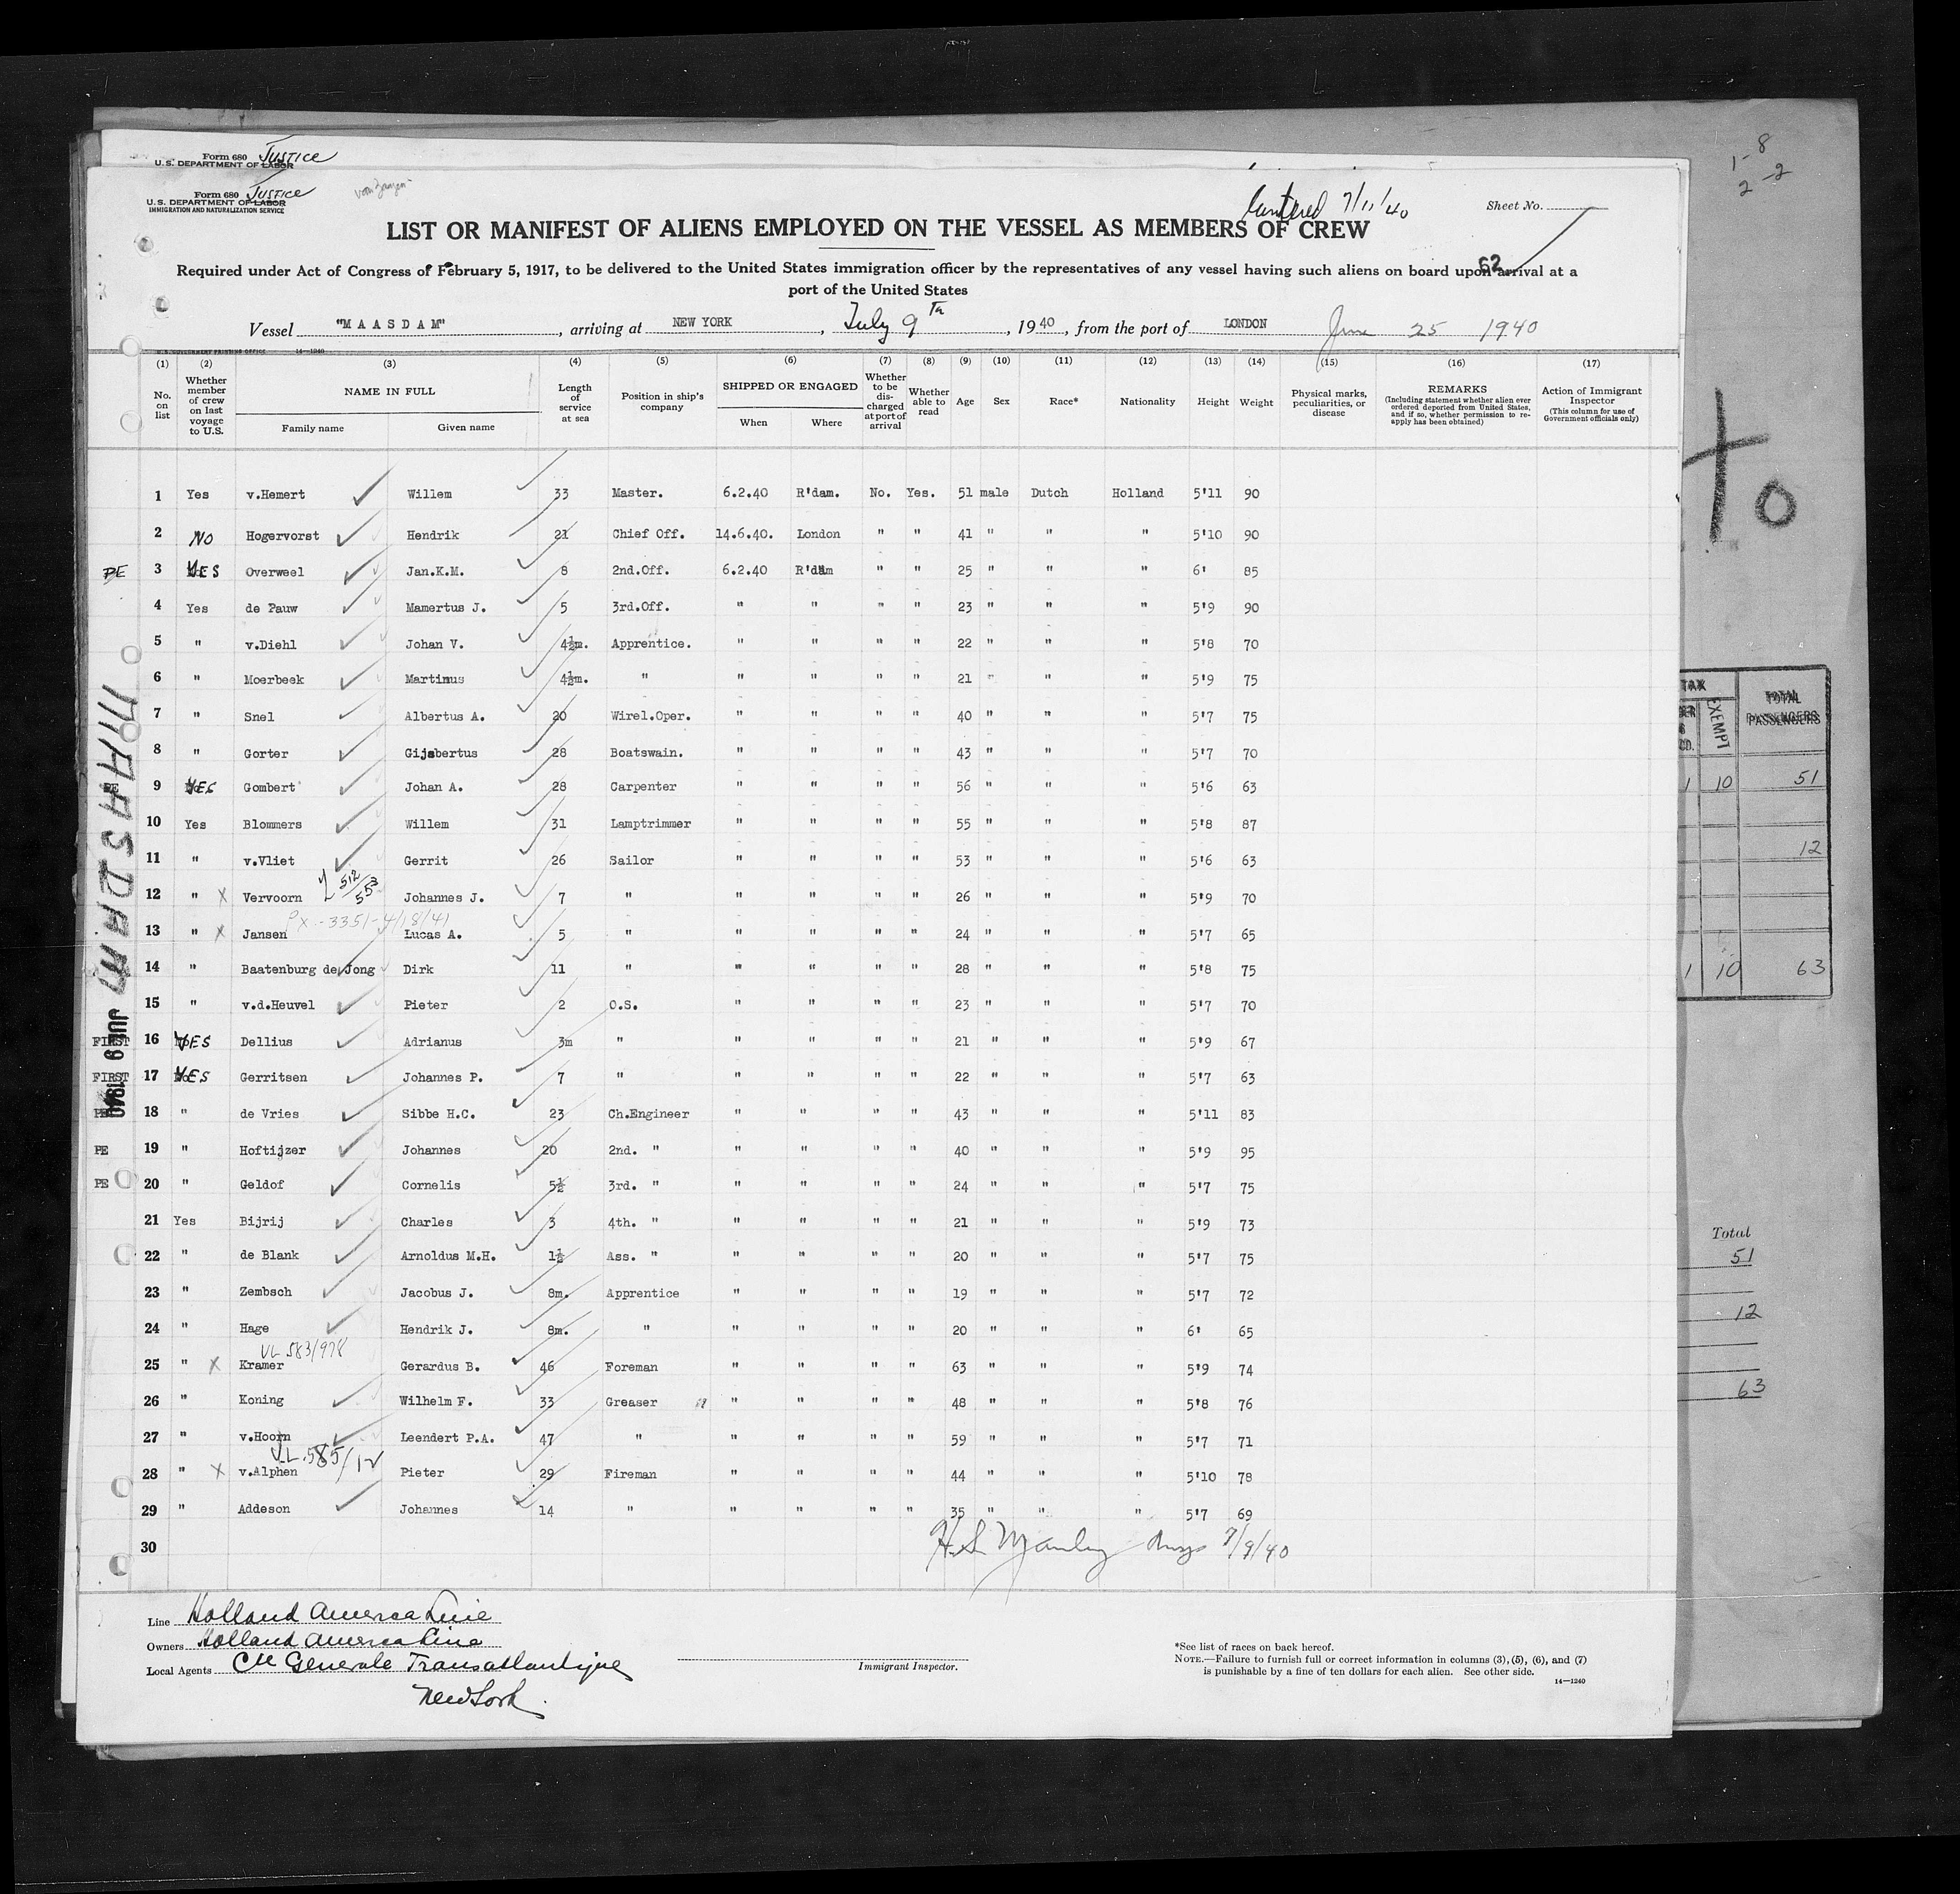 Form 680 JUSTICE
U.S. DEPARTMENT OF LABOR
Form 680 JUSTICE
U.S. DEPARTMENT OF LABOR
IMMIGRATION AND NATURALIZATION SERVICE
7/11/40
Sheet No.
LIST OR MANIFEST OF ALIENS EMPLOYED ON THE VESSEL AS MEMBERS OF CREW
62
Required under Act of Congress of February 5, 1917, to be delivered to the United States immigration officer by the representatives of any vessel having such aliens on board upon arrival at a
port of the United States
Vessel "MAASDAM", arriving at NEW YORK, July 9th, 1940, from the port of LONDON June 25 1940
U.S. GOVERNMENT PRINTING OFFICE 14-1240
(1) (2) (3) (4) (5) (6) (7) (8) (9) (10) (11) (12) (13) (14) (15) (16) (17)
No. on list
Whether member of crew on last voyage to U.S.
NAME IN FULL
Family name Given name
Length of service at sea
Position in ship's company
SHIPPED OR ENGAGED
When Where
Whether to be discharged at port of arrival
Whether able to read
Age
Sex
Race*
Nationality
Height
Weight
Physical marks, peculiarities, or disease
REMARKS
(Including statement whether alien ever ordered deported from United States, and if so, whether permission to reapply has been obtained)
Action of Immigrant Inspector
(This column for use of Government officials only)
1 Yes v.Hemert Willem 33 Master. 6.2.40 R'dam. No. Yes. 51 male Dutch Holland 5'11 90
2 NO Hogervorst Hendrik 21 Chief Off. 14.6.40. London " " 41 " " " 5'10 90
PE 3 YES Overweel Jan.K.M. 8 2nd.Off. 6.2.40 R'dam " " 25 " " " 6' 85
4 Yes de Pauw Mamertus J. 5 3rd.Off. " " " " 23 " " " 5'9 90
5 " v.Diehl Johan V. 4½m. Apprentice. " " " " 22 " " " 5'8 70
6 " Moerbeek Martinus 4½m. " " " " " 21 " " " 5'9 75
7 " Snel Albertus A. 20 Wirel.Oper. " " " " 40 " " " 5'7 75
8 " Gorter Gijsbertus 28 Boatswain. " " " " 43 " " " 5'7 70
PE 9 YES Gombert Johan A. 28 Carpenter " " " " 56 " " " 5'6 63
10 Yes Blommers Willem 31 Lamptrimmer " " " " 55 " " " 5'8 87
11 " v.Vliet Gerrit 26 Sailor " " " " 53 " " " 5'6 63
512/553
12 " X Vervoorn Johannes J. 7 " " " " " 26 " " " 5'9 70
Px-3351-4/18/41
13 " X Jansen Lucas A. 5 " " " " " 24 " " " 5'7 65
14 " Baatenburg de Jong Dirk 11 " " " " " 28 " " " 5'8 75
15 " v.d.Heuvel Pieter 2 O.S. " " " " 23 " " " 5'7 70
FIRST 16 YES Dellius Adrianus 3m " " " " " 21 " " " 5'9 67
FIRST 17 YES Gerritsen Johannes P. 7 " " " " " 22 " " " 5'7 63
PE 18 " de Vries Sibbe H.C. 23 Ch.Engineer " " " " 43 " " " 5'11 83
PE 19 " Hoftijzer Johannes 20 2nd. " " " " " 40 " " " 5'9 95
PE 20 " Geldof Cornelis 5½ 3rd. " " " " " 24 " " " 5'7 75
21 Yes Bijrij Charles 3 4th. " " " " " 21 " " " 5'9 73
22 " de Blank Arnoldus M.H. 1½ Ass. " " " " " 20 " " " 5'7 75
23 " Zembsch Jacobus J. 8m. Apprentice " " " " 19 " " " 5'7 72
24 " Hage Hendrik J. 8m. " " " " " 20 " " " 6' 65
VL 583/978
25 " X Kramer Gerardus B. 46 Foreman " " " " 63 " " " 5'9 74
26 " Koning Wilhelm F. 33 Greaser " " " " 48 " " " 5'8 76
27 " v.Hoorn Leendert P.A. 47 " " " " " 59 " " " 5'7 71
VL.585/12
28 " X v.Alphen Pieter 29 Fireman " " " " 44 " " " 5'10 78
29 " Addeson Johannes 14 " " " " " 35 " " " 5'7 69
30
7/9/40
MAASDAM JUL 9 1940
Line Holland America Line
Owners Holland America Line
Local Agents Cie Generale Transatlantique
New York.
Immigrant Inspector.
*See list of races on back hereof.
NOTE.—Failure to furnish full or correct information in columns (3), (5), (6), and (7)
is punishable by a fine of ten dollars for each alien. See other side.
14—1240
TAX
EXEMPT
TOTAL PASSENGERS
1 10 51
12
1 10 63
Total
51
12
63